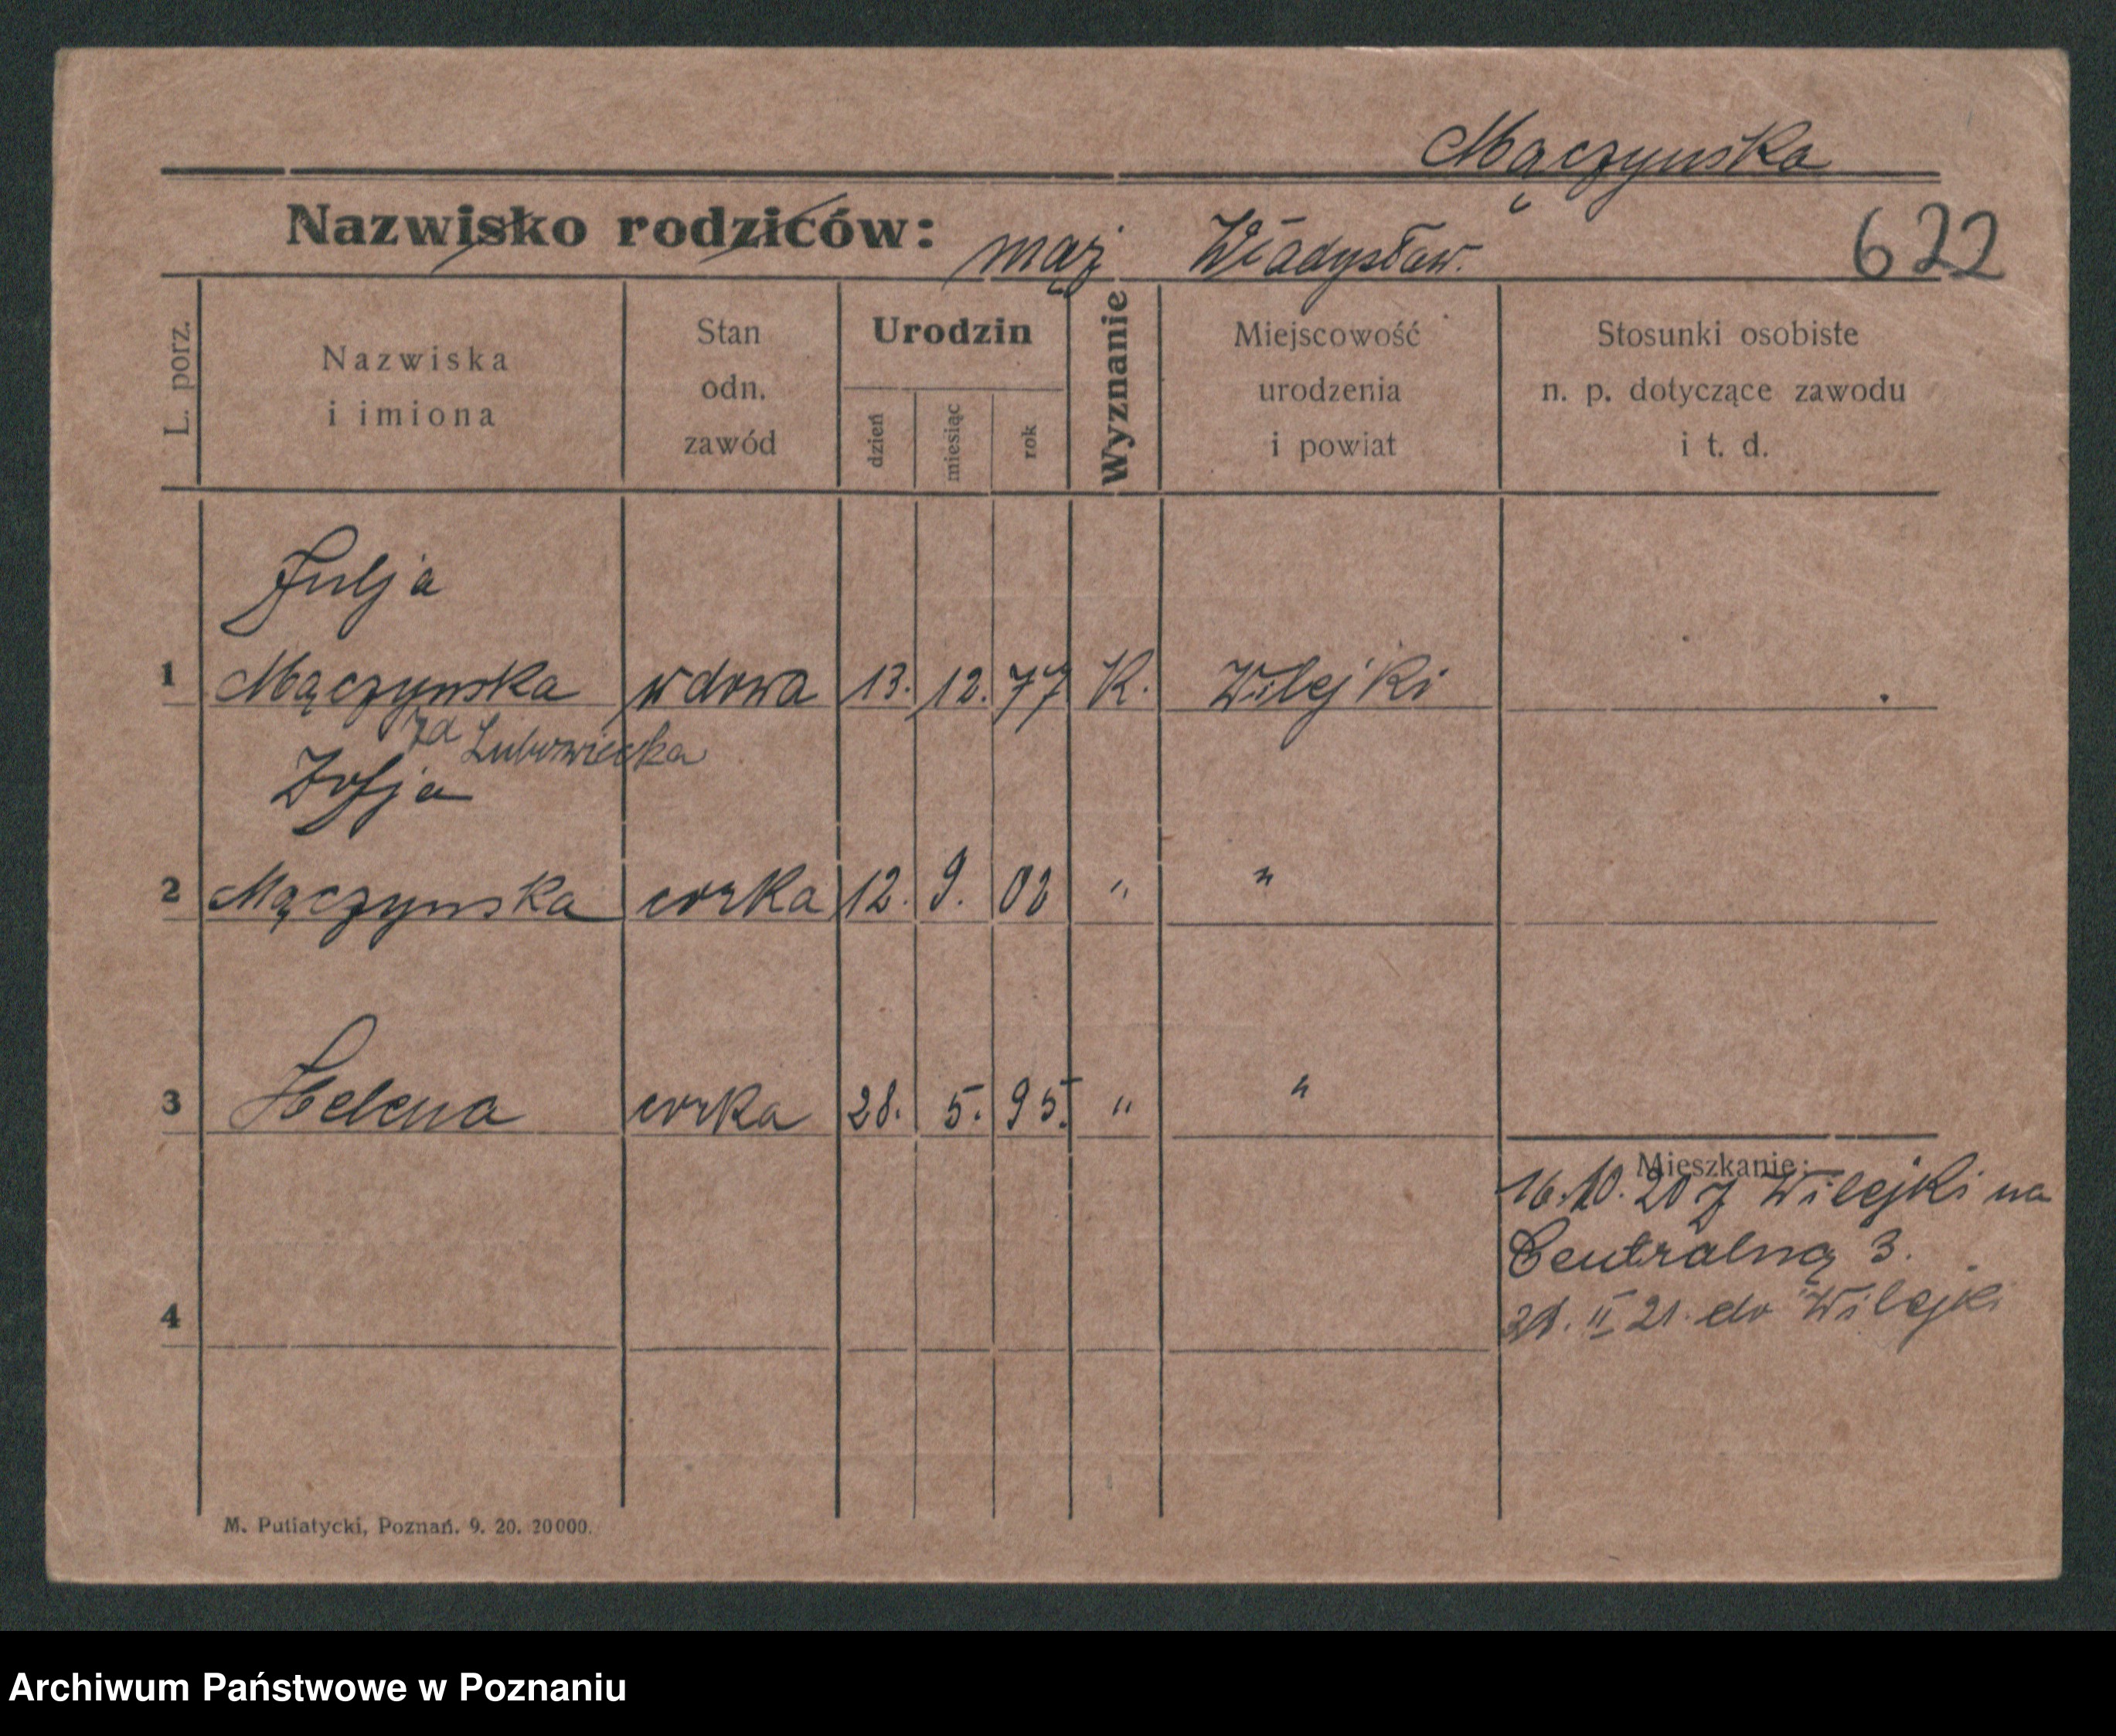 Mączynska
Nazwisko rodziców: mąż Władysław.
622
L. porz.
Nazwiska
i imiona
Stan
odn.
zawód
Urodzin
dzień
miesiąc
rok
Wyznanie
Miejscowość
urodzenia
i powiat
Stosunki osobiste
n. p. dotyczące zawodu
i t. d.
Julja
1 Mączynska wdowa 13. 12. 77 K. Wilejki
Zofja
2 Mączynska corka 12. 9. 02 " "
3 Helena corka 28. 5. 95. " "
Mieszkanie:
16.10.20 z Wilejki na
Centralną 3.
II 21. do Wilejki
4
M. Putiatycki, Poznań. 9. 20. 20000.
Archiwum Państwowe w Poznaniu